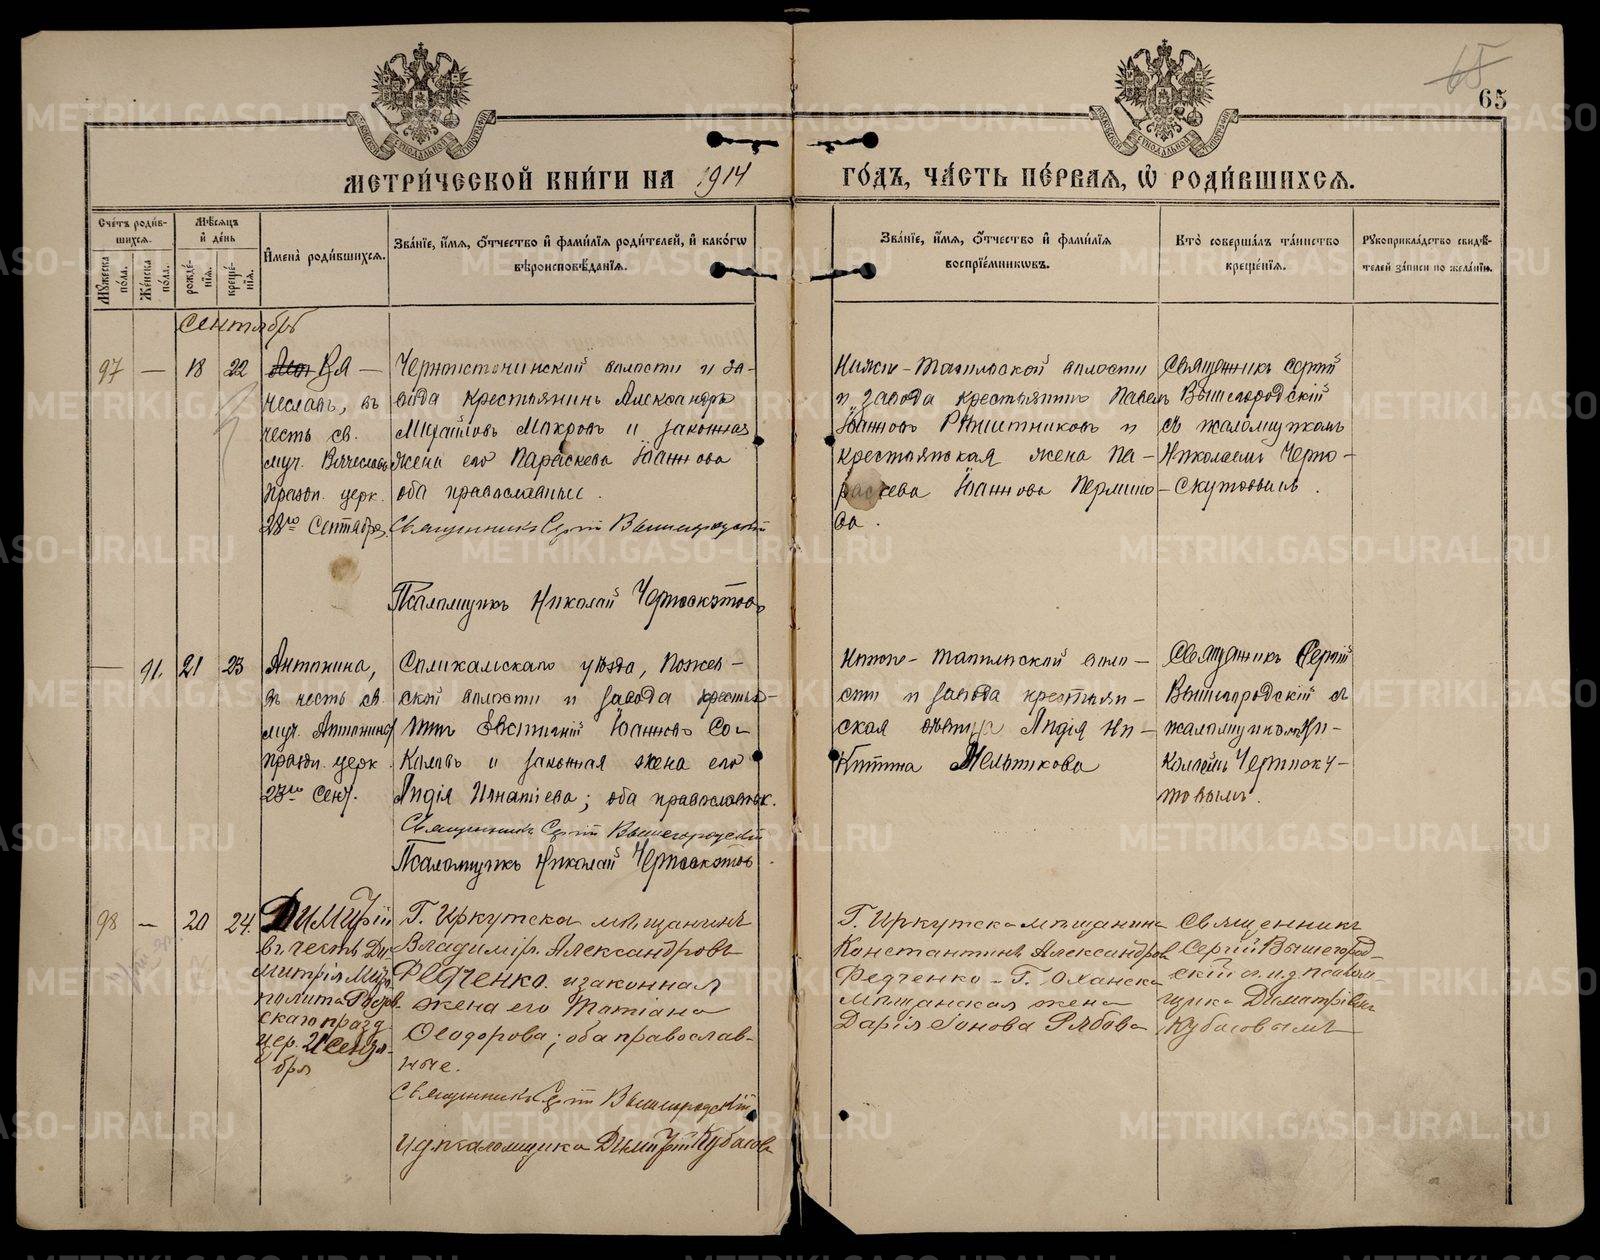 65
65
МЕТРИ́ЧЕСКОЙ КНИ́ГИ НА 1914 ГО́ДЪ, ЧА́СТЬ ПЕ́РВАЯ, Ѡ РОДИ́ВШИХСѦ.
Сче́тъ роди́вшихсѧ.
Мꙋ́жеска по́ла.
Же́нска по́ла.
Мѣ́сѧцъ и де́нь
рожде́нїѧ.
креще́нїѧ.
Имена̀ роди́вшихсѧ.
Зва́нїе, и́мѧ, ѻ́тчество и фами́лїѧ роди́телей, и како́гѡ
вѣроисповѣ́данїѧ.
Зва́нїе, и́мѧ, ѻ́тчество и фами́лїѧ
воспрїе́мникѡвъ.
Кто̀ соверша́лъ та́инство
креще́нїѧ.
Рꙋкоприкла́дство свидѣ́-
телей за́писи по жела́нїю.
Сентябрь
97 — 18 22
Вя —
чеславъ, въ
честь св.
муч. Вячеслава
празн. церк.
28го Сентября.
Черноисточинской волости и за-
вода крестьянинъ Александръ
Михаиловъ Мокровъ и законная
жена его Параскева Іоаннова
оба православные.
Священникъ Сергій Вышегородскій
Псаломщикъ Николай Черноскутовъ
Нижне-Тагильской волости
и завода крестьянинъ Павелъ
Іоанновъ Рѣшетниковъ и
крестьянская жена Па-
раскева Іоаннова Пермико-
ва.
Священникъ Сергій
Вышегородскій
съ псаломщикомъ
Николаемъ Черно-
скутовымъ.
— 91. 21 23
Антонина,
въ честь св.
муч. Антонины
празн. церк.
23го Сент.
Соликамскаго уѣзда, Пожев-
ской волости и завода крестья-
нинъ Евстигній Іоанновъ Со-
коловъ и законная жена его
Лидія Игнатіева; оба православн.
Священникъ Сергій Вышегородскій
Псаломщикъ Николай Черноскутовъ.
Нижне-Тагильской воло-
сти и завода крестьян-
ская дѣвица Лидія Ни-
китина Мельникова
Священникъ Сергій
Вышегородскій съ
псаломщикомъ Ни-
колаемъ Черноску-
товымъ.
98 — 20 24.
Димитрій
въ честь Ди-
митрія Митро-
полита Ростов-
скаго празд.
цер. 21 Сентя-
бря
Г. Иркутска мѣщанинъ
Владиміръ Александровъ
Федченко и законная
жена его Татіана
Ѳеодорова; оба православ-
ные.
Священникъ Сергій Вышегородскій
И д псаломщика Димитрій Кубасовъ
Г. Иркутска мѣщанинъ
Константинъ Александровъ
Федченко - Г. Оханска
мѣщанская жена
Дарія Іонова Рябова
Священникъ
Сергій Вышегород-
скій с и. д. псалом-
щика Димитріемъ
Кубасовымъ
METRIKI.GASO-URAL.RU